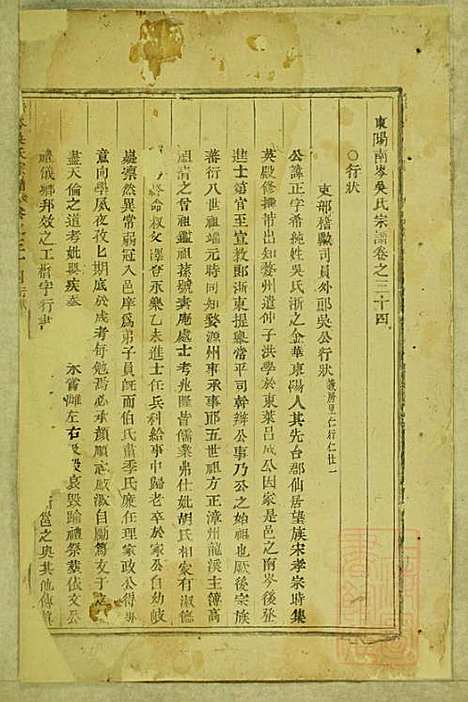 東陽南岑吳氏宗譜卷之三十四
○行狀
吏部稽勳司員外郎吳公行狀 義房里仁行仁壯一
公諱正字希純姓吳氏浙之金華東陽人其先台郡仙居望族宋孝宗時集
英殿修撰出知婺州道仲子洪學於東萊呂成公因家是邑之南岑後登
進士第官至宣教郎浙東提舉常平司幹辦公事乃公之始祖也厥後宗族
蕃衍八世祖端元時同知婺源州事承事郎五世祖方正漳州龍溪主簿高
祖 清之曾祖鑑祖孫號 菴處士考兆隆皆儒業弗仕妣胡氏相家有淑德
叔父澤登永樂乙未進士任兵科給事中歸老卒於家公自幼岐
嶷凛然異常弱冠入邑庠爲弟子員旣而伯氏肅季氏廉任理家政公得專
意向學夙夜孜孜期底於成考每勉焉必承顏順志感激自勵篤友于之
盡天倫之道考妣與疾
左右及殁哀毀踰禮祭葬依文公
禮儀鄉邦效之工楷字行書
之與其他傳